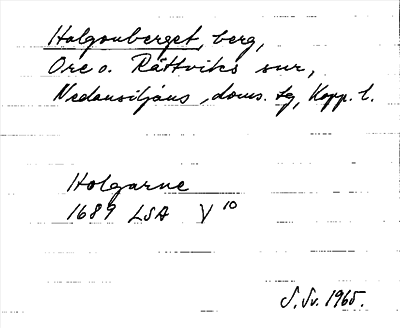 Holgonberget, berg,
Ore o. Rättviks snr,
Nedansiljans doms. tg, Kopp. l.
Holgarne
1689 LSA V 10
S. Sv. 1965.